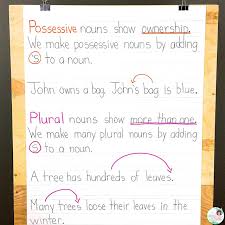 Possessive nouns show ownership.
We make possessive nouns by adding
's to a noun.
John owns a bag. John's bag is blue.
Plural nouns show more than one.
We make many plural nouns by adding
s to a noun.
A tree has hundreds of leaves.
Many trees loose their leaves in the
winter.